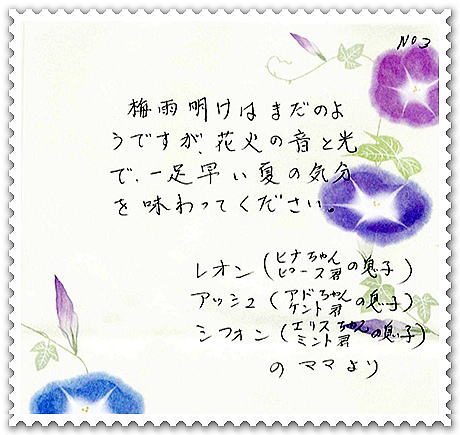 No3
梅雨明けはまだのよ
うですが、花火の音と光
で、一足早い夏の気分
を味わってください。
レオン(ヒナちゃん ピース君の息子)
アッシュ(アドちゃん ケント君の息子)
シフォン(エリスちゃん ミント君の息子)
のママより